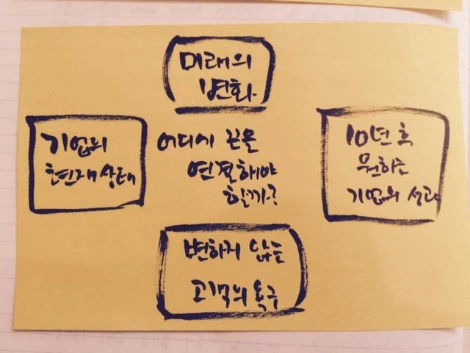 미래의
변화
기업의
현재상태
어디서 부를
연결해야
할까?
10년 후
원하는
기업의 성과
변하지 않는
고객의 욕구